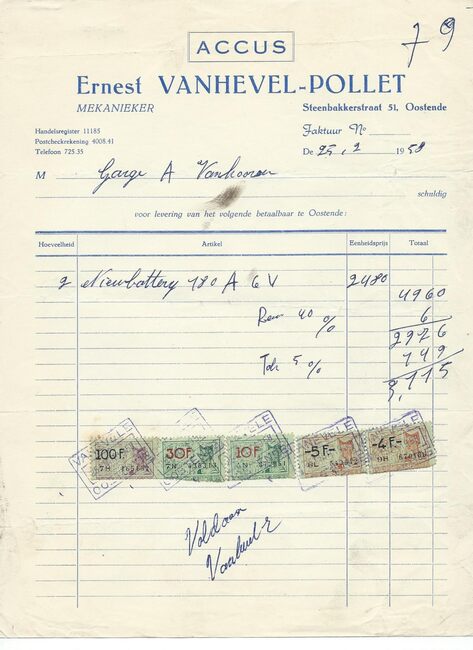 79
ACCUS
Ernest VANHEVEL-POLLET
MEKANIEKER
Steenbakkerstraat 51, Oostende
Handelsregister 11185
Postcheckrekening 4008.41
Telefoon 725.35
Faktuur No
De 25.2 1958
M Garage A Vanhooren
schuldig
voor levering van het volgende betaalbaar te Oostende:
Hoeveelheid Artikel Eenheidsprijs Totaal
2 Nieuw battery 180 A 6 V 2480 4960
Rem 40 % 6
2976
Tax 5 % 149
3,115
100F. 30F. 10F -5F- -4F-
7H 8L 9H
Voldaan